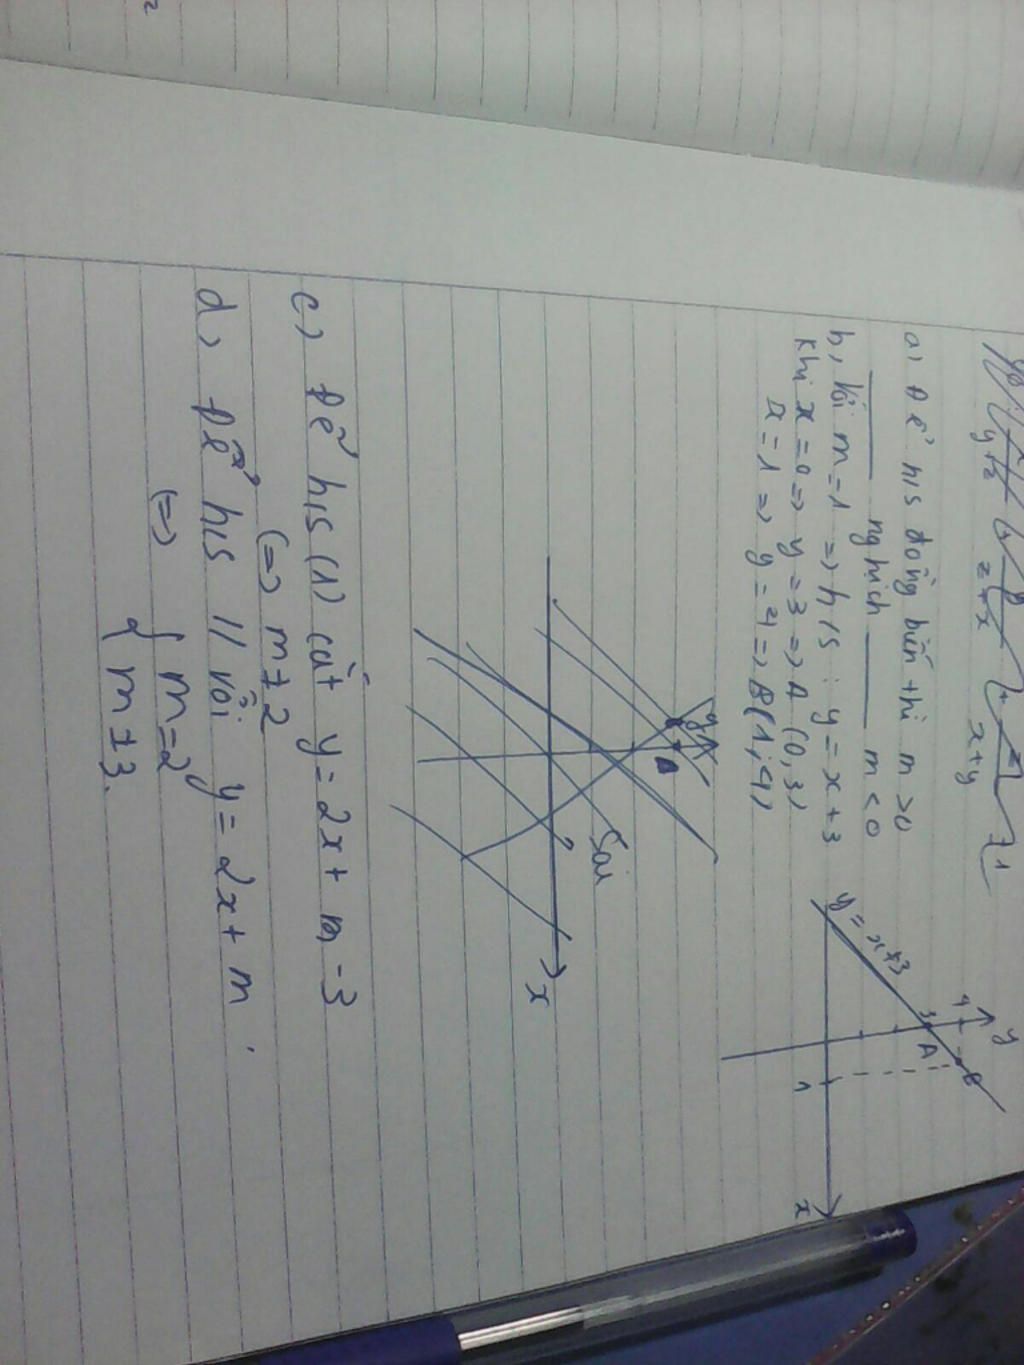 y+z z+x x+y
a, Để h/s đồng biến thì m > 0
nghịch m < 0
b, Với m = 1 => h/s : y = x + 3
Khi x = 0 => y = 3 => A (0,3)
x = 1 => y = 4 => B (1,4)
y
4
B
3
A
y = x+3
1
x
y
B
A
Sai
x
c, Để h/s (1) cắt y = 2x + m - 3
(=) m ≠ 2
d, Để h/s // với y = 2x + m.
(=) { m = 2
m ≠ 3.